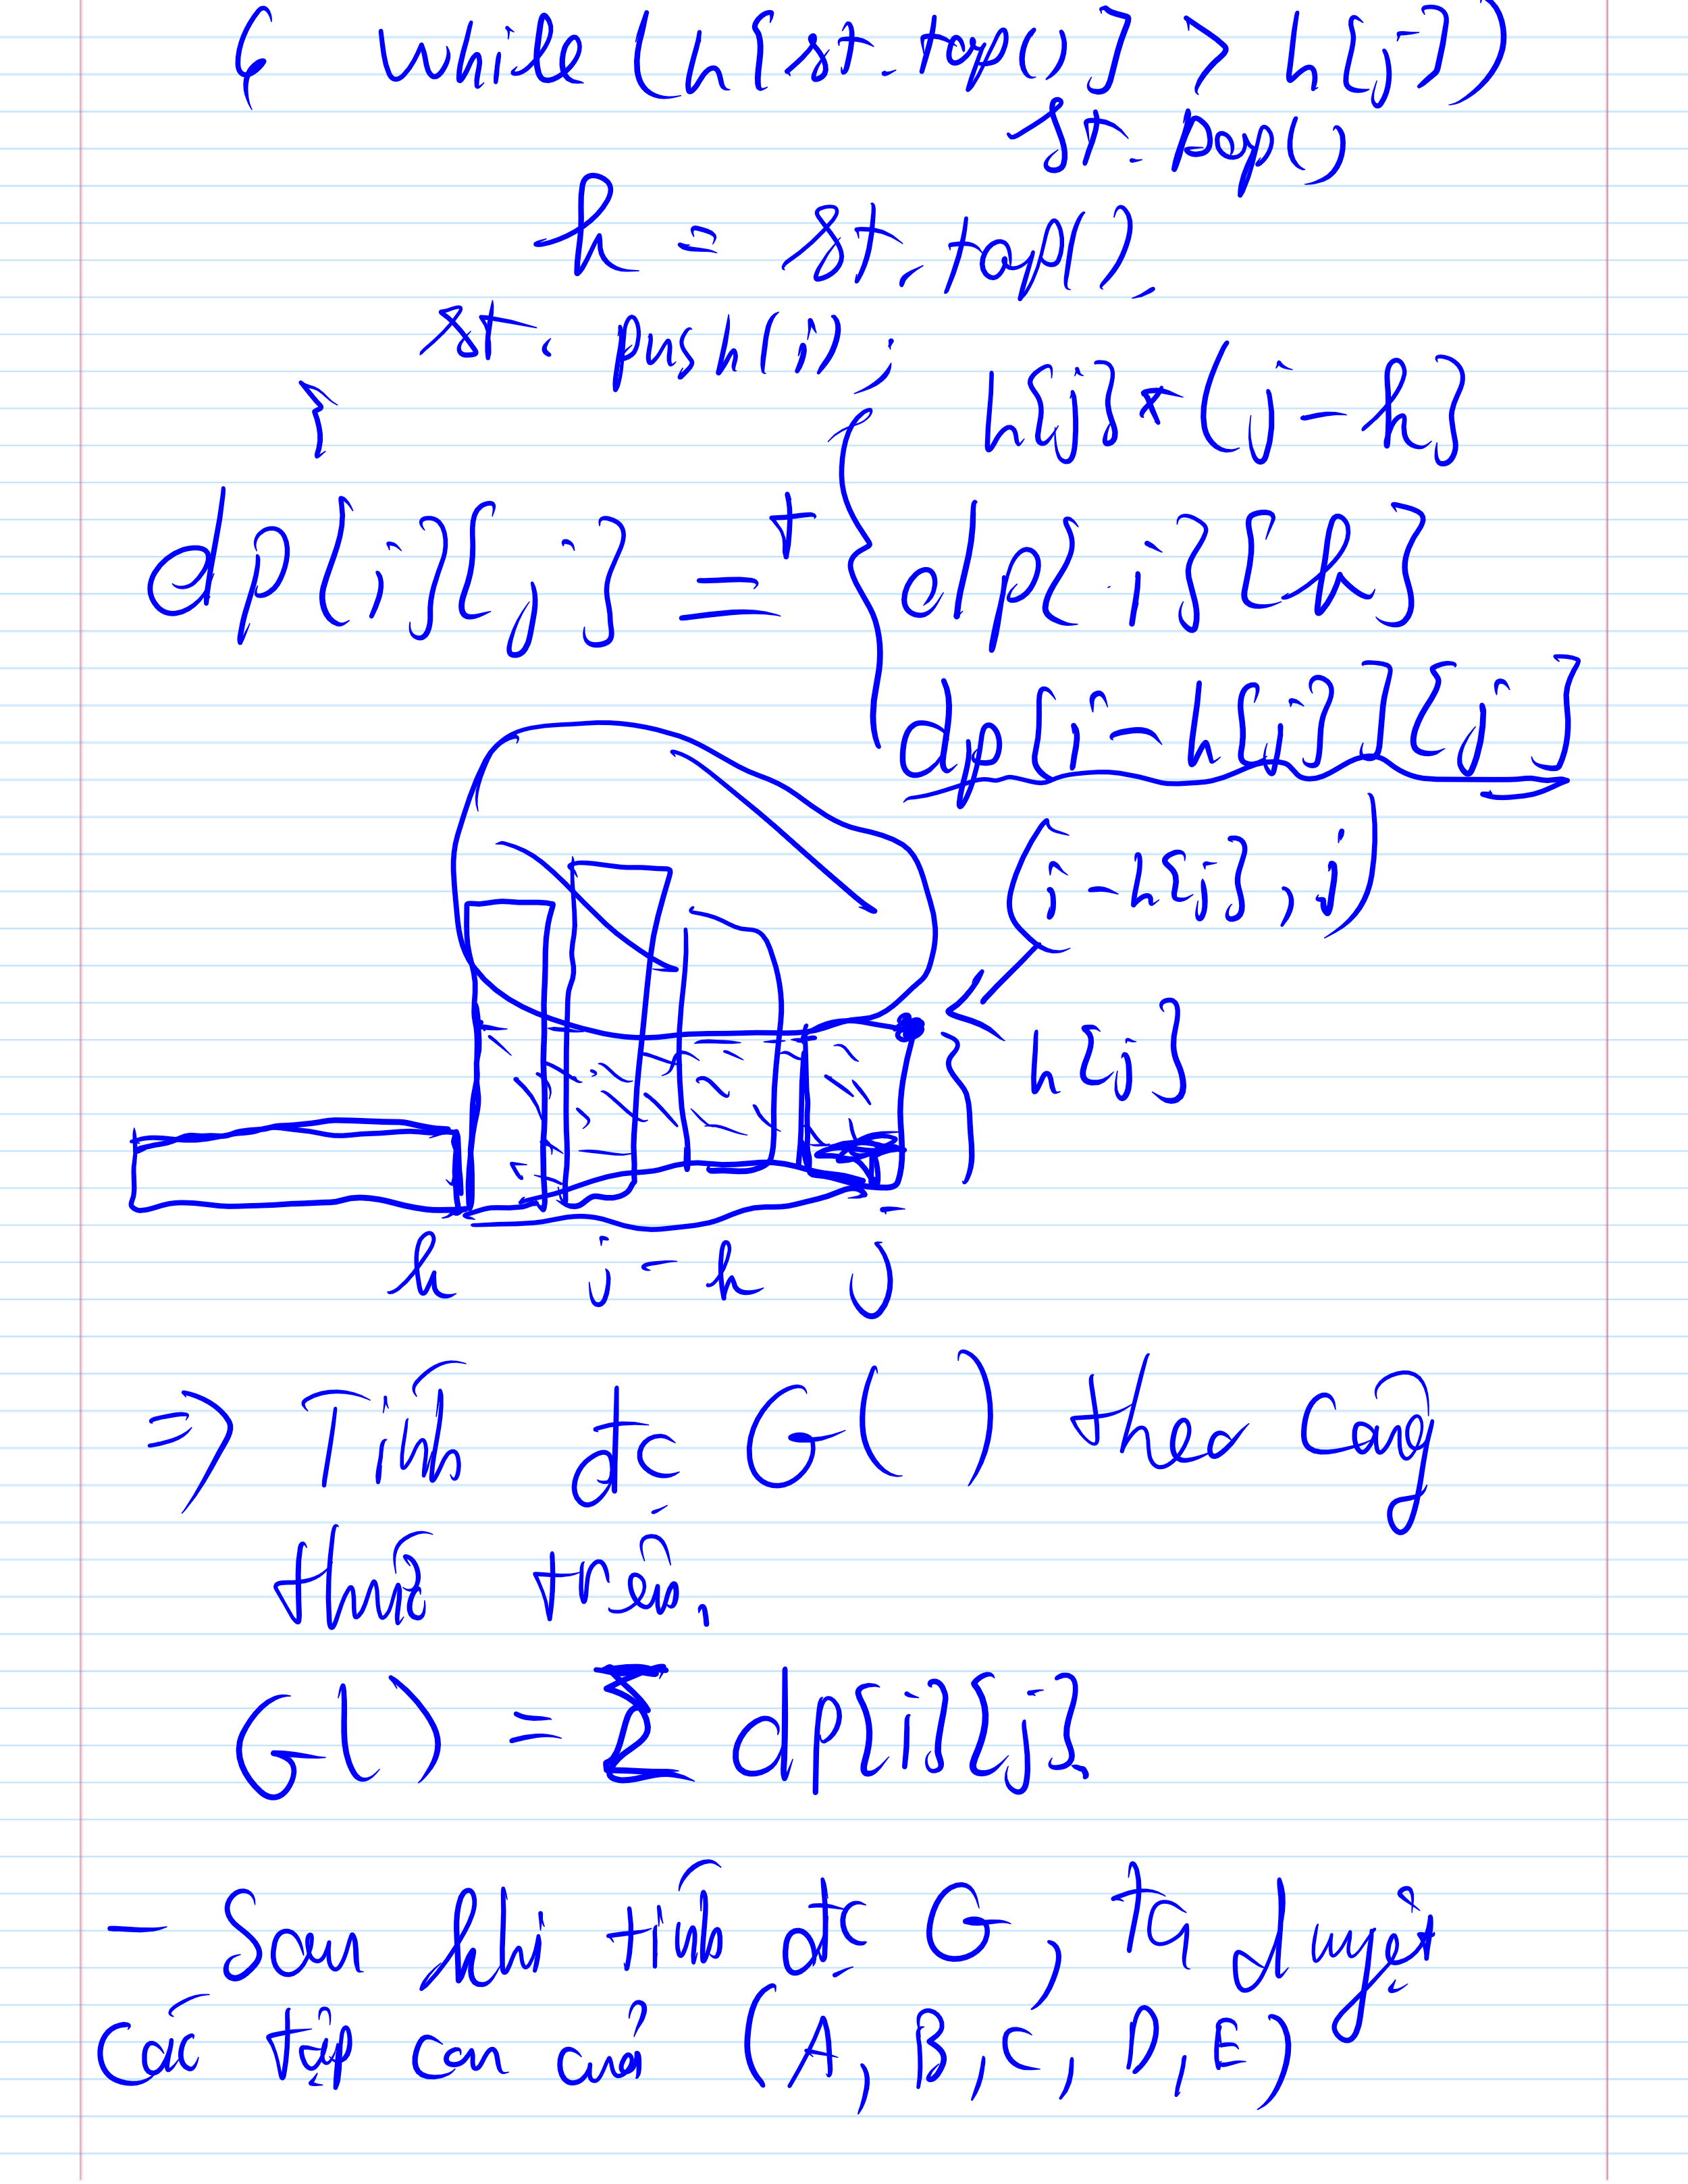 { while (h[st.top()] > h[j])
st.pop()
k = st.top();
st.push(j);
}
h[j]*(j-k]
dp[i][j] =+ { dp[i][k]
dp[i-h[j]][j]
(i-h[j], j)
h[j]
k j-k j
⇒ Tính đc G() theo công
thức trên.
G() = Σ dp[i][j].
- Sau khi tính đc G, ta duyệt
các tập con của (A, B, C, D, E)